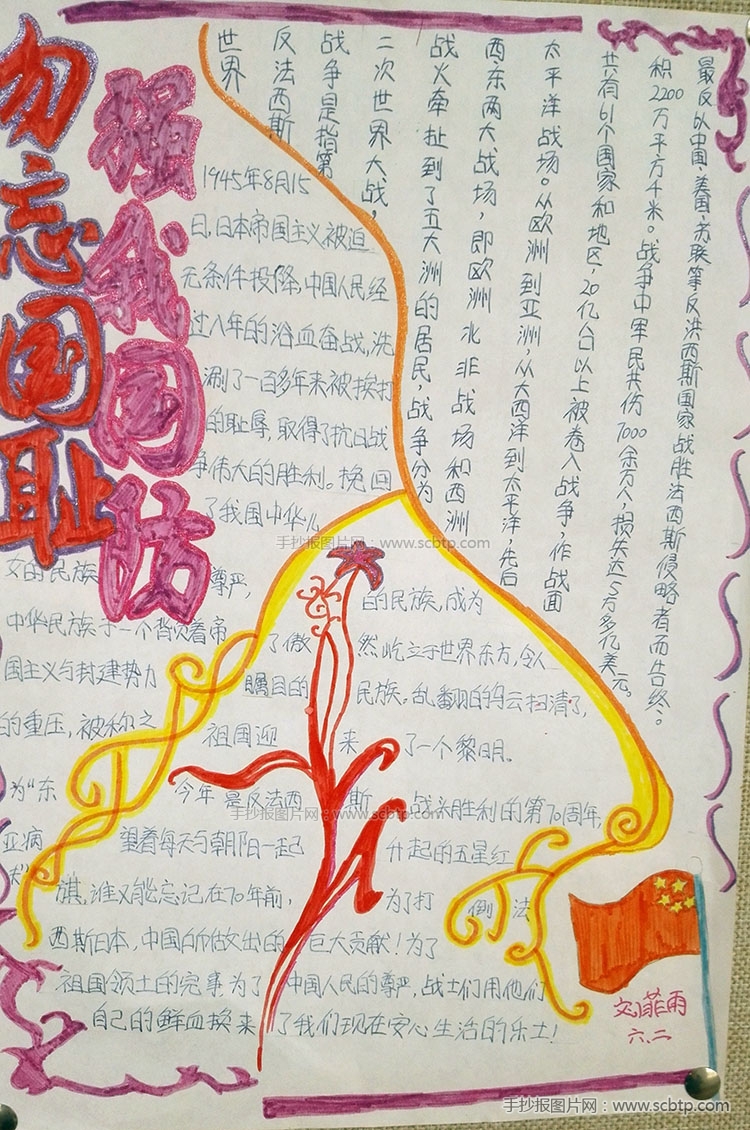 勿忘国耻
强我国防
世界
反法西斯
战争是指第
二次世界大战,
战火牵扯到了五大洲的居民战争分为
西东两大战场,即欧洲北非战场和西洲
太平洋战场。从欧洲到亚洲,从大西洋到太平洋,先后
共有61个国家和地区,20亿人口以上被卷入战争,作战面
积2200万平方千米。战争中军民共伤7000余万人,损失达5万多亿美元。
最反以中国、美国、苏联等反洪西斯国家战胜法西斯侵略者而告终。
1945年8月15
日,日本帝国主义被迫
无条件投降,中国人民经
过八年的浴血奋战,洗
涮了一百多年来被挨打
的耻辱,取得了抗日战
争伟大的胜利。挽回
了我国中华儿
女的民族尊严,的民族,成为
中华民族于一个背负着帝了傲然屹立于世界东方,令人
国主义与封建势力瞩目的民族。乱翻的乌云扫清了,
的重压,被称之祖国迎来了一个黎明。
为“东今年是反法西斯战斗胜利的第70周年,
亚病望着每天与朝阳一起升起的五星红
夫”旗,谁又能忘记,在70年前,为了打倒法
西斯日本,中国所做出的巨大贡献!为了
祖国领土的完事为了中国人民的尊严,战士们用他们
自己的鲜血换来了我们现在安心生活的乐土!
菲雨
六、二
手抄报图片网:www.scbtp.com
手抄报图片网:www.scbtp.com
手抄报图片网:www.scbtp.com